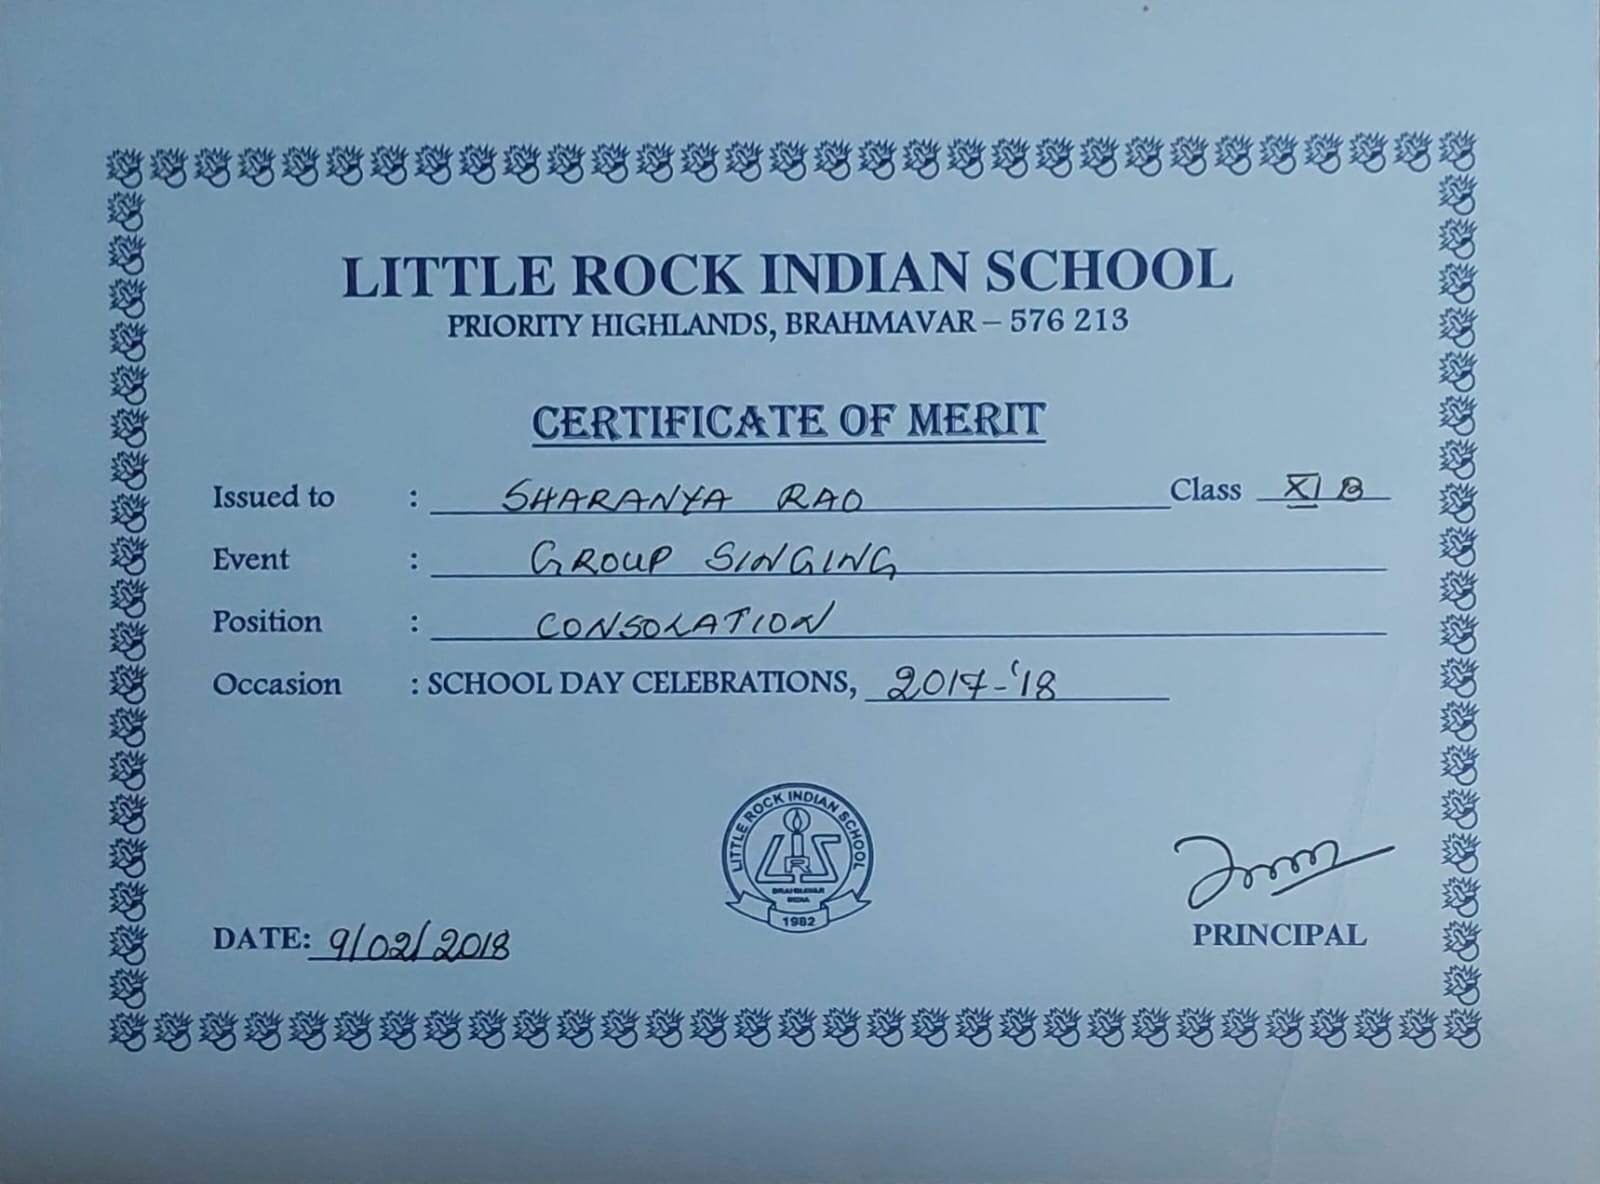 LITTLE ROCK INDIAN SCHOOL
PRIORITY HIGHLANDS, BRAHMAVAR – 576 213
CERTIFICATE OF MERIT
Issued to : SHARANYA RAO Class XI B
Event : GROUP SINGING
Position : CONSOLATION
Occasion : SCHOOL DAY CELEBRATIONS, 2017-'18
LITTLE ROCK INDIAN SCHOOL
LRIS
BRAHMAVAR
INDIA
1982
DATE: 9/02/2018
PRINCIPAL